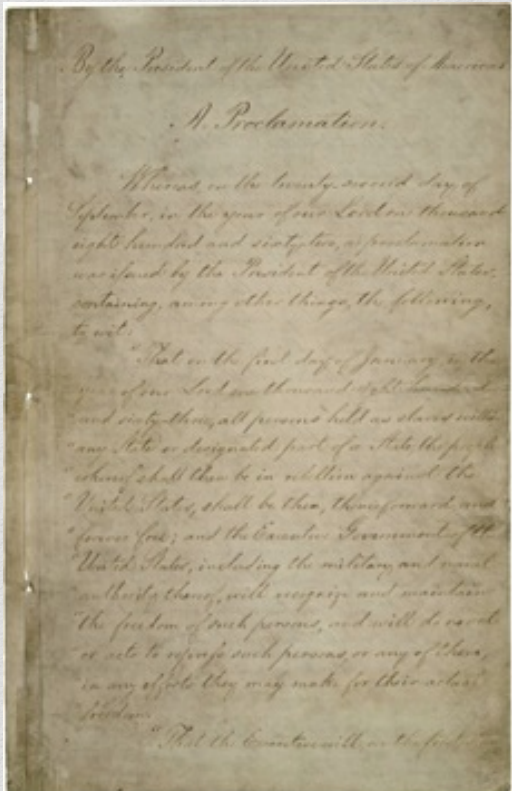 By the President of the United States of America:
A Proclamation.
Whereas, on the twenty-second day of
September, in the year of our Lord one thousand
eight hundred and sixty two, a proclamation
was issued by the President of the United States,
containing, among other things, the following,
to wit:
"That on the first day of January, in the
"year of our Lord one thousand eight hundred
"and sixty-three, all persons held as slaves within
"any State or designated part of a State, the people
"whereof shall then be in rebellion against the
"United States, shall be then, thenceforward, and
"forever free; and the Executive Government of the
"United States, including the military and naval
"authority thereof, will recognize and maintain
"the freedom of such persons, and will do no act
"or acts to repress such persons, or any of them,
"in any efforts they may make for their actual
"freedom.
"That the Executive will, on the first